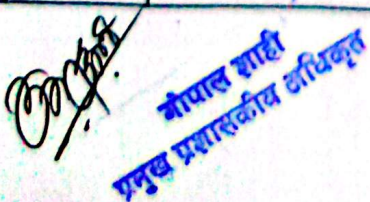 गोपाल शाही
प्रमुख प्रशासकीय अधिकृत